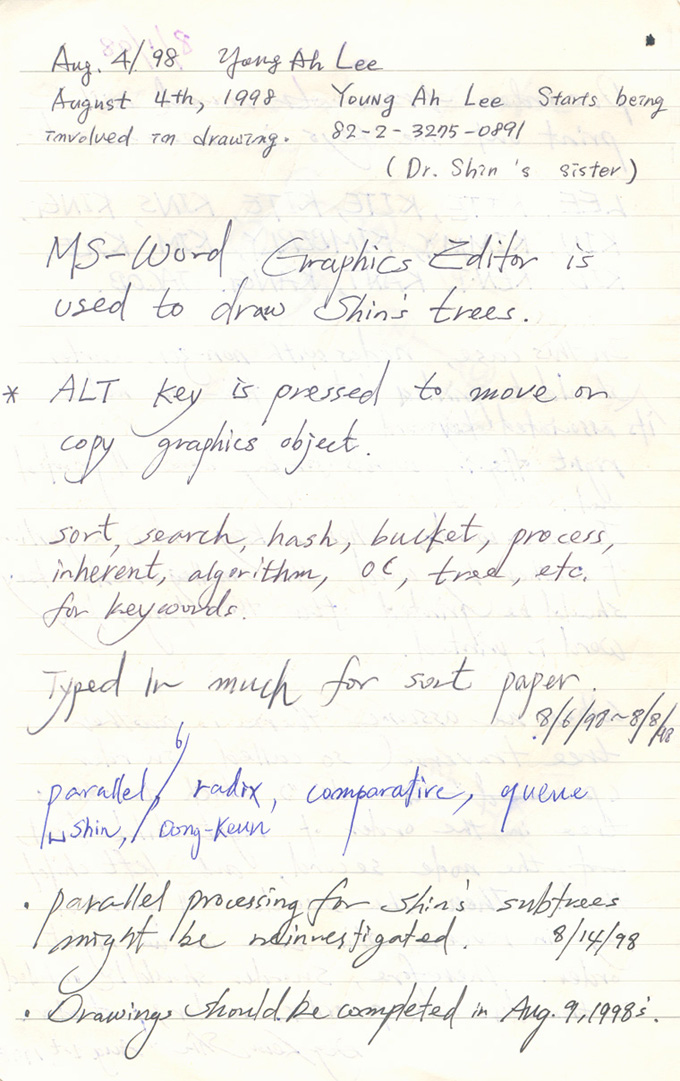 Aug. 4/98 Young Ah Lee
August 4th, 1998 Young Ah Lee Starts being
involved in drawing. 82-2-3275-0891
(Dr. Shin's sister)
MS-Word Graphics Editor is
used to draw Shin's trees.
* ALT key is pressed to move or
copy graphics object.
sort, search, hash, bucket, process,
inherent, algorithm, OC, tree, etc.
for keywords.
Typed in much for sort paper.
8/6/98~8/8/98
parallel, radix, comparative, queue
Shin, Dong-Keun
• parallel processing for Shin's subtrees
might be reinvestigated. 8/14/98
• Drawings should be completed in Aug. 9, 1998's.